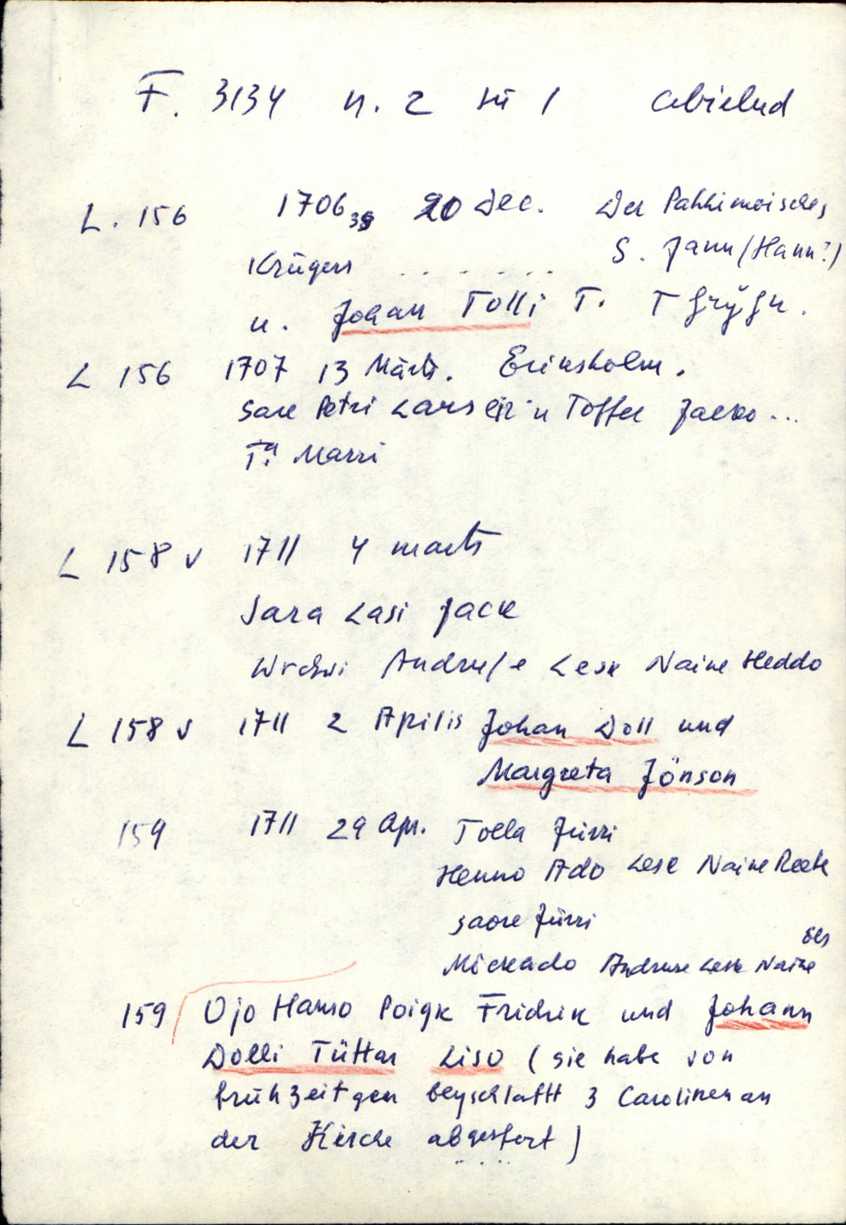 F. 3134 n. 2 sü 1 abielud
L. 156 1706 39 20 Dec. Der Pahkimoisches
S. Jann (Hann?)
Krügers . . . . . .
u. Johan Tolli T.
L 156 1707 13 Märts. Erinsholm.
Sare Petri Lars u Toffer Jacko ...
Ta. Marri
L 158 v 1711 4 marts
Sara Lasi Jack
Andruse Lesk Naine Heddo
L 158 v 1711 2 Aprilis Johan Doll und
Margreta Jönson
159 1711 29 Apr. Tolla Jürri
Henno Ado Lesk Naine Reet
Saore Jürri
Mickado Andruse Lesk Naine Els
159 Ojo Hanso Poigk Fridrik und Johann
Dolli Tüttar Liso (sie habe von
frühzeitgen beyschlafft 3 Carolinen an
der Kirche abgesfert)